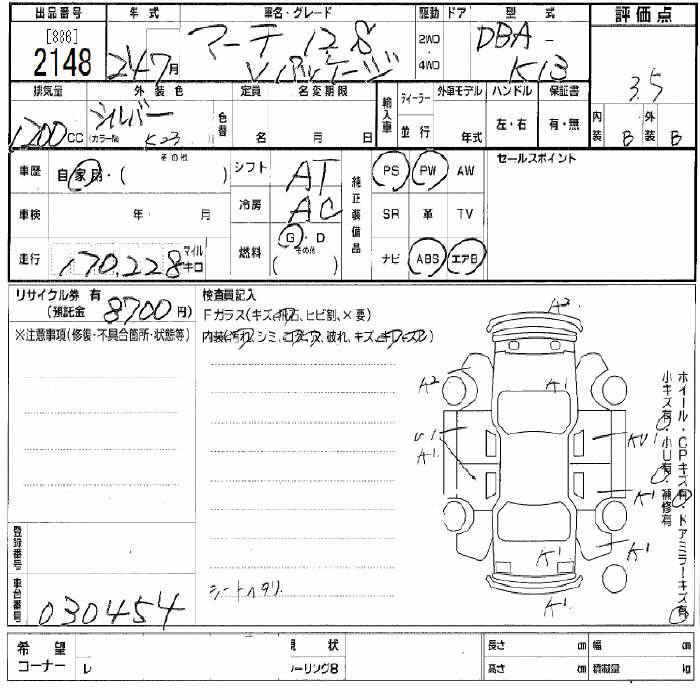 出品番号 年式 車名・グレード 駆動 ドア 型式 評価点
[886] 2148
24年7月 マーチ 12S Vパッケージ 2WD 4WD DBA- K13 3.5
排気量 外装色 定員 名変期限 輸入車 ディーラー 外車モデル ハンドル 保証書 内装 B 外装 B
1200CC シルバー カラーNo K23 色替 名 年 月 日 並行 年式 左・右 有・無
車歴 自家用・( その他 ) シフト AT 純正装備品 PS PW AW セールスポイント
車検 年 月 冷房 AC SR 革 TV
走行 170,228 マイル キロ 燃料 G・D (その他) ナビ ABS エアB
リサイクル券 有 (預託金 8700円)
※注意事項(修復・不具合箇所・状態等)
検査員記入
Fガラス(キズ、石、ヒビ割、×要)
内装(汚れ、シミ、コゲ、破れ、キズ、)
A2
A2 A1
U1 A1 KU1
K1
K1 K1
K1
ホイール・CPキズ有・ドアミラーキズ有
小キズ有・小U有・補修有
シートヘタリ
登録番号
車台番号 030454
希望コーナー レ 現状 ーリング8 長さ cm 幅 cm
高さ cm 積載量 kg